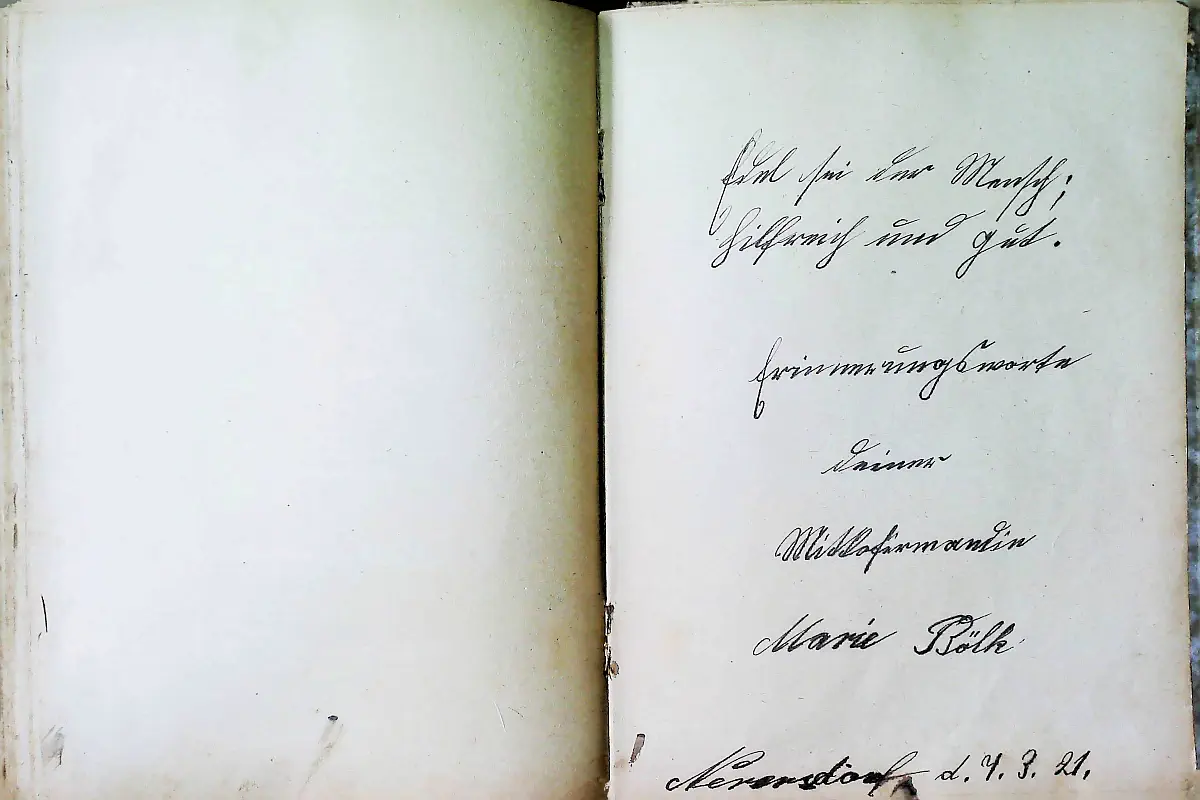 Edel sei der Mensch;
hilfreich und gut.
Erinnerungsworte
deiner
Mitkofirmandin
Marie Bölk.
d. 7. 3. 21.